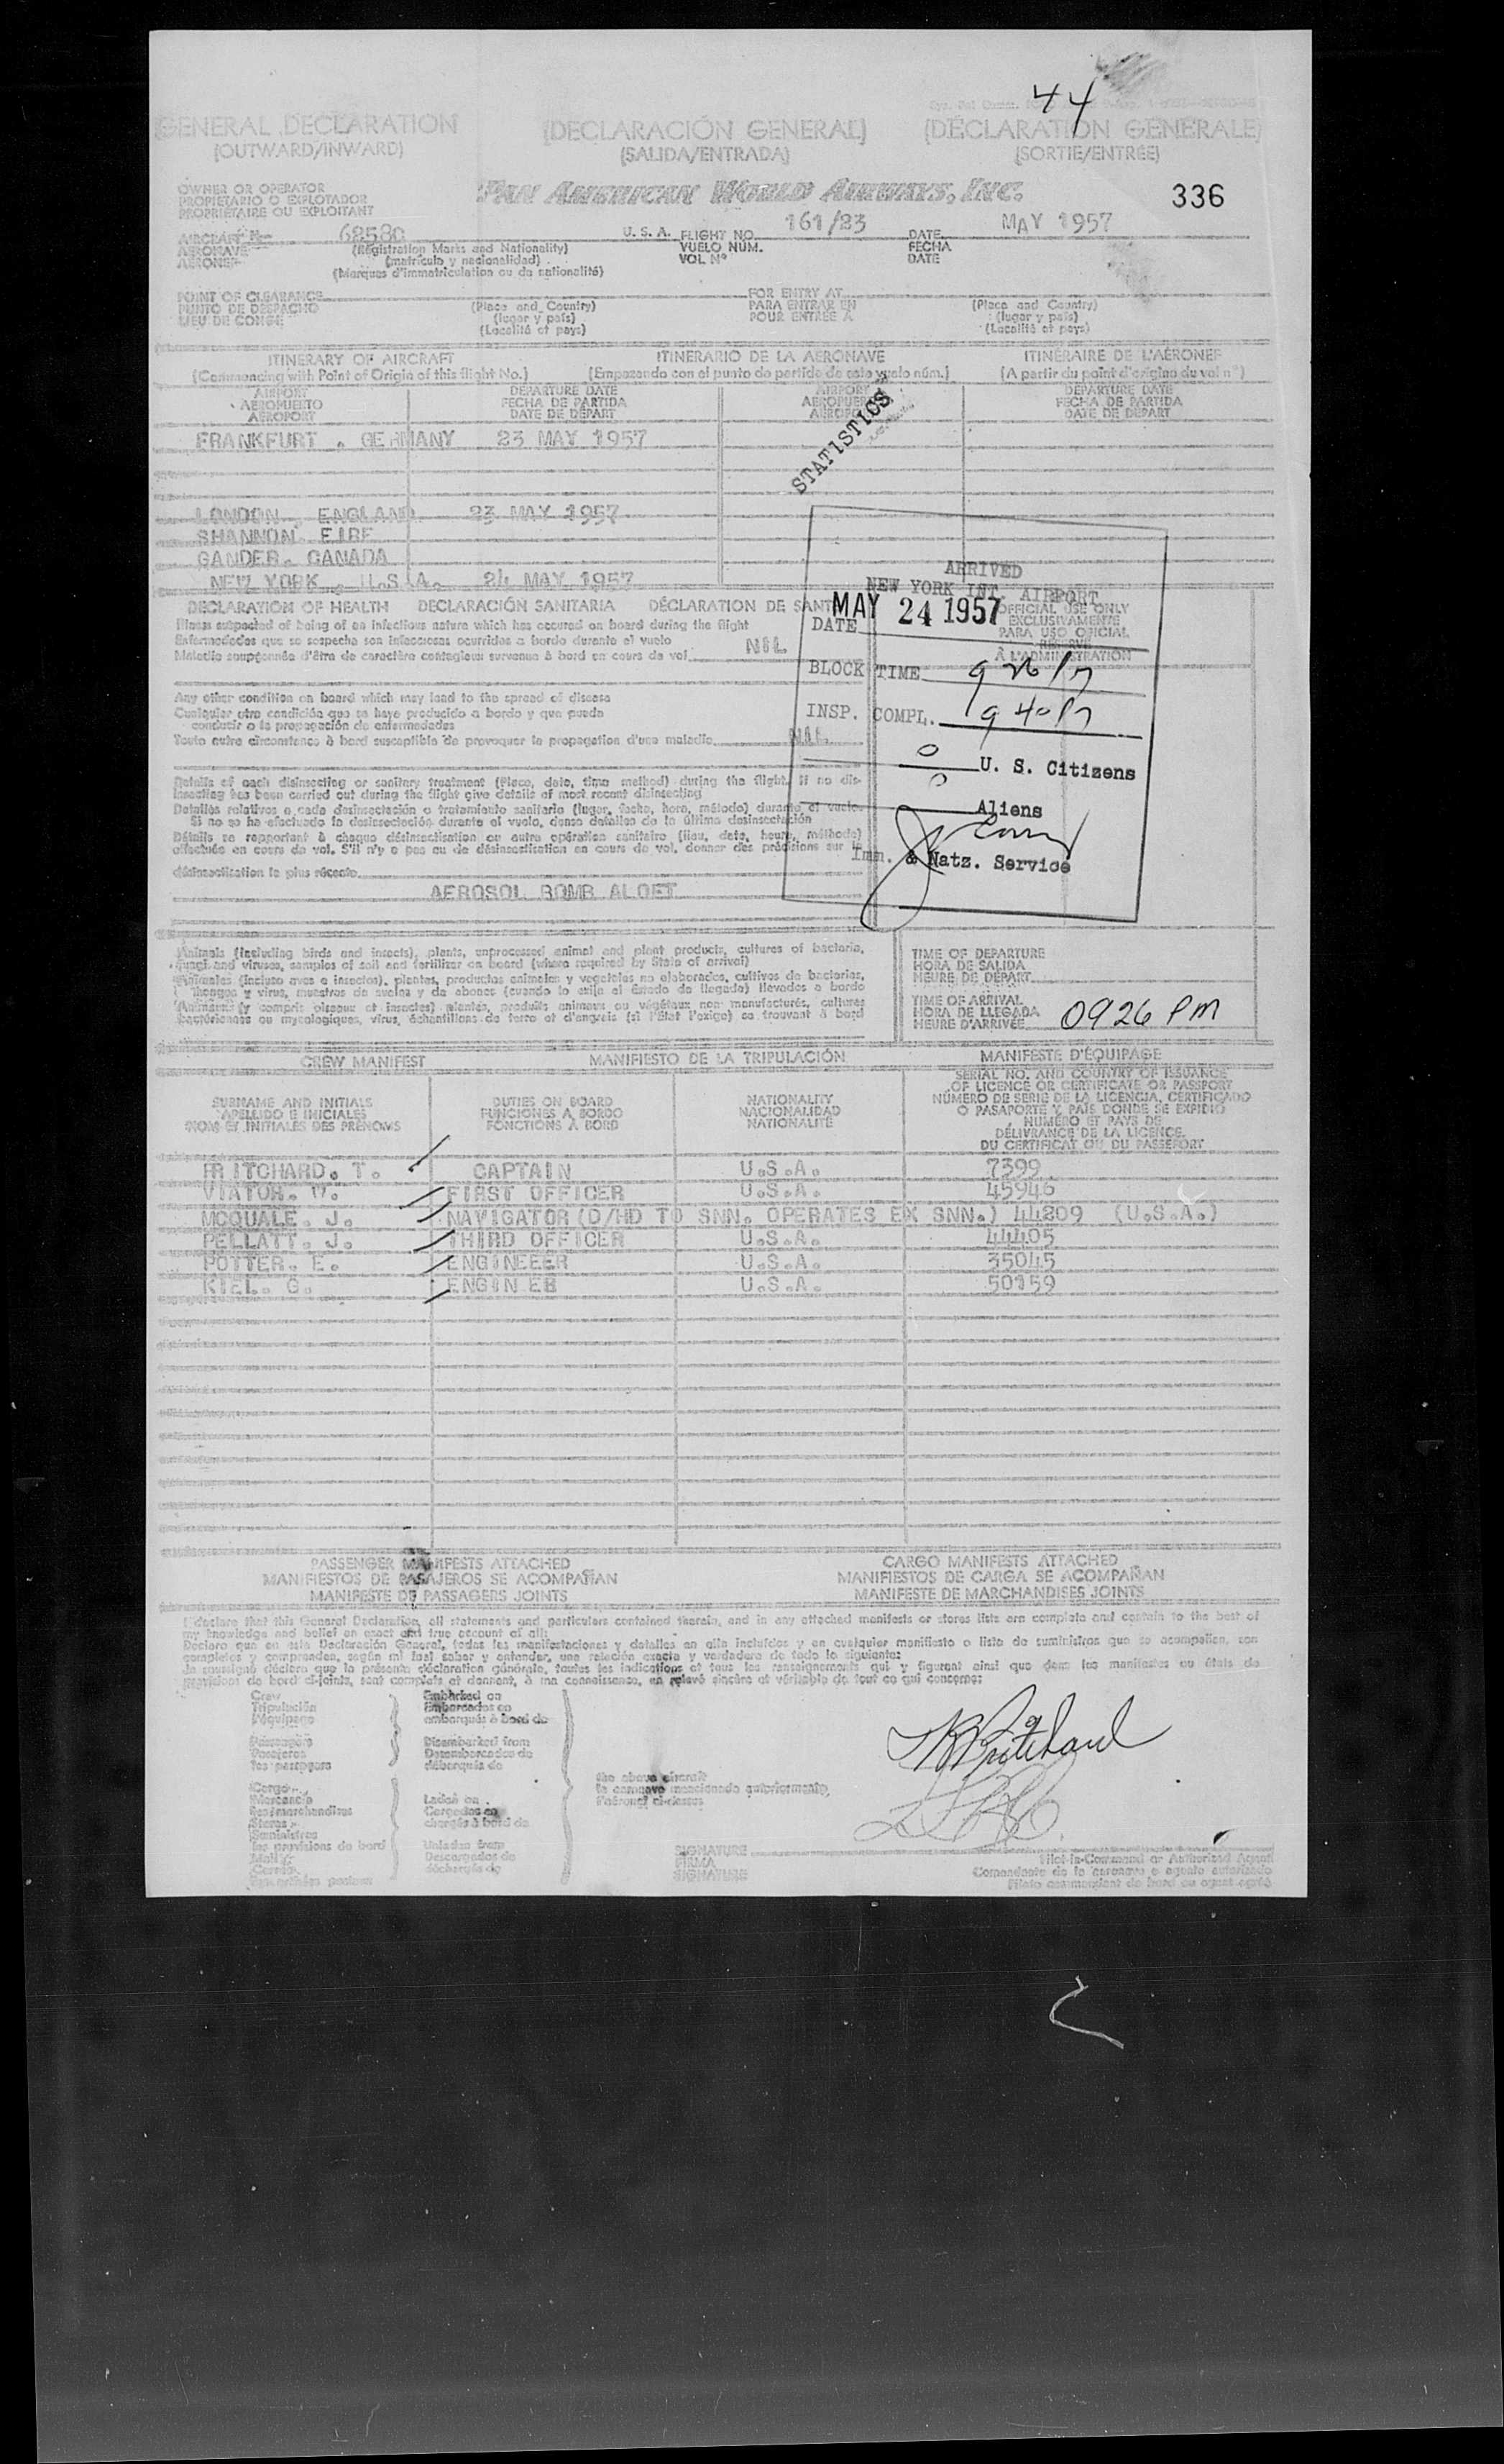 44
GENERAL DECLARATION (DECLARACIÓN GENERAL) (DÉCLARATION GENERALE)
(OUTWARD/INWARD) (SALIDA/ENTRADA) (SORTIE/ENTRÉE)
OWNER OR OPERATOR
PROPIETARIO O EXPLOTADOR
PROPRIÉTAIRE OU EXPLOITANT
PAN AMERICAN WORLD AIRWAYS, INC.
336
AIRCRAFT No. U. S. A. FLIGHT NO. 161/23 DATE MAY 1957
AERONAVE (Registration Marks and Nationality) VUELO NÚM. FECHA
AÉRONEF (matrícula y nacionalidad) VOL Nº DATE
(Marques d'immatriculation ou de nationalité)
POINT OF CLEARANCE FOR ENTRY AT
PUNTO DE DESPACHO (Place and Country) PARA ENTRAR EN (Place and Country)
LIEU DE CONGÉ (lugar y país) POUR ENTRÉE À (lugar y país)
(Localité et pays) (Localité et pays)
ITINERARY OF AIRCRAFT ITINERARIO DE LA AERONAVE ITINÉRAIRE DE L'AÉRONEF
(Commencing with Point of Origin of this flight No.) (Empezando con el punto de partida de este vuelo núm.) (A partir du point d'origine du vol nº)
AIRPORT DEPARTURE DATE AIRPORT DEPARTURE DATE
AEROPUERTO FECHA DE PARTIDA AEROPUERTO FECHA DE PARTIDA
AÉROPORT DATE DE DÉPART AÉROPORT DATE DE DÉPART
STATISTICS
FRANKFURT . GERMANY 23 MAY 1957
LONDON . ENGLAND 23 MAY 1957
SHANNON. EIRE
GANDER. CANADA
NEW YORK . U.S.A. 24 MAY 1957
ARRIVED
NEW YORK INT. AIRPORT
DATE MAY 24 1957
BLOCK TIME 926 PM
INSP. COMPL. 940 PM
0 U. S. Citizens
0 Aliens
Imm. & Natz. Service
OFFICIAL USE ONLY
EXCLUSIVAMENTE
PARA USO OFICIAL
RÉSERVÉ
À L'ADMINISTRATION
DECLARATION OF HEALTH DECLARACIÓN SANITARIA DÉCLARATION DE SANTÉ
Illness suspected of being of an infectious nature which has occured on board during the flight
Enfermedades que se sospecha son infecciosas ocurridas a bordo durante el vuelo
Maladie soupçonnée d'être de caractère contagieux survenue à bord en cours de vol NIL
Any other condition on board which may lead to the spread of disease
Cualquier otra condición que se haya producido a bordo y que pueda
conducir a la propagación de enfermedades
Toute autre circonstance à bord susceptible de provoquer la propagation d'une maladie NIL
Details of each disinsecting or sanitary treatment (Place, date, time method) during the flight. If no disinsecting
has been carried out during the flight give details of most recent disinsecting
Detalles relativos a cada desinsectación o tratamiento sanitario (lugar, fecha, hora, método) durante el vuelo.
Si no se ha efectuado la desinsectación durante el vuelo, dense detalles de la última desinsectación
Détails se rapportant à chaque désinsectisation ou autre opération sanitaire (lieu, date, heure, méthode)
effectuée en cours de vol. S'il n'y a pas eu de désinsectisation en cours de vol, donner des précisions sur la
désinsectisation la plus récente
AEROSOL BOMB ALOFT
Animals (including birds and insects), plants, unprocessed animal and plant products, cultures of bacteria,
fungi and viruses, samples of soil and fertilizer on board (where required by State of arrival)
Animales (incluso aves e insectos), plantas, productos animales y vegetales no elaborados, cultivos de bacterias,
hongos y virus, muestras de suelos y de abonos (cuando lo exija el Estado de llegada) llevados a bordo
Animaux (y compris oiseaux et insectes) plantes, produits animaux ou végétaux non manufacturés, cultures
bactériennes ou mycologiques, virus, échantillons de terre et d'engrais (si l'État l'exige) se trouvant à bord
TIME OF DEPARTURE
HORA DE SALIDA
HEURE DE DÉPART
TIME OF ARRIVAL
HORA DE LLEGADA
HEURE D'ARRIVÉE 0926 PM
CREW MANIFEST MANIFIESTO DE LA TRIPULACIÓN MANIFESTE D'ÉQUIPAGE
SURNAME AND INITIALS
APELLIDO E INICIALES
NOM ET INITIALES DES PRÉNOMS
DUTIES ON BOARD
FUNCIONES A BORDO
FONCTIONS À BORD
NATIONALITY
NACIONALIDAD
NATIONALITÉ
SERIAL NO. AND COUNTRY OF ISSUANCE
OF LICENCE OR CERTIFICATE OR PASSPORT
NÚMERO DE SERIE DE LA LICENCIA, CERTIFICADO
O PASAPORTE Y PAÍS DONDE SE EXPIDIÓ
NUMÉRO ET PAYS DE
DÉLIVRANCE DE LA LICENCE,
DU CERTIFICAT OU DU PASSEPORT
PRITCHARD. T. CAPTAIN U.S.A. 7399
VIATOR. W. FIRST OFFICER U.S.A. 45946
MCQUALE. J. NAVIGATOR (D/HD TO SNN. OPERATES EX SNN.) 44209 (U.S.A.)
PELLATT. J. THIRD OFFICER U.S.A. 44405
POTTER. E. ENGINEEER U.S.A. 35045
KIEL. G. ENGINEER U.S.A. 50159
PASSENGER MANIFESTS ATTACHED CARGO MANIFESTS ATTACHED
MANIFIESTOS DE PASAJEROS SE ACOMPAÑAN MANIFIESTOS DE CARGA SE ACOMPAÑAN
MANIFESTE DE PASSAGERS JOINTS MANIFESTE DE MARCHANDISES JOINTS
I declare that this General Declaration, all statements and particulars contained therein, and in any attached manifests or stores lists are complete and contain to the best of
my knowledge and belief an exact and true account of all:
Declaro que en esta Declaración General, todas las manifestaciones y detalles en ella incluídos y en cualquier manifiesto o lista de suministros que se acompañen, son
completos y comprenden, según mi leal saber y entender, una relación exacta y verdadera de todo lo siguiente:
Je soussigné déclare que la présente déclaration générale, toutes les indications et tous les renseignements qui y figurent ainsi que dans les manifestes ou états de
provisions de bord ci-joints, sont complets et donnent, à ma connaissance, un relevé sincère et véritable de tout ce qui concerne:
Crew
Tripulación
l'équipage
Passengers
Pasajeros
les passagers
Embarked on
Embarcados en
embarqués à bord de
Disembarked from
Desembarcados de
débarqués de
Cargo
Mercancía
les marchandises
Stores
Suministros
les provisions de bord
Laded on
Cargados en
chargés à bord de
Unladen from
Descargados de
déchargés de
the above aircraft
la aeronave mencionada anteriormente,
l'aéronef ci-dessus
T R Pritchard
SIGNATURE
FIRMA
SIGNATURE
Pilot-in-Command or Authorized Agent
Comandante de la aeronave o agente autorizado
Pilote commandant de bord ou agent agréé